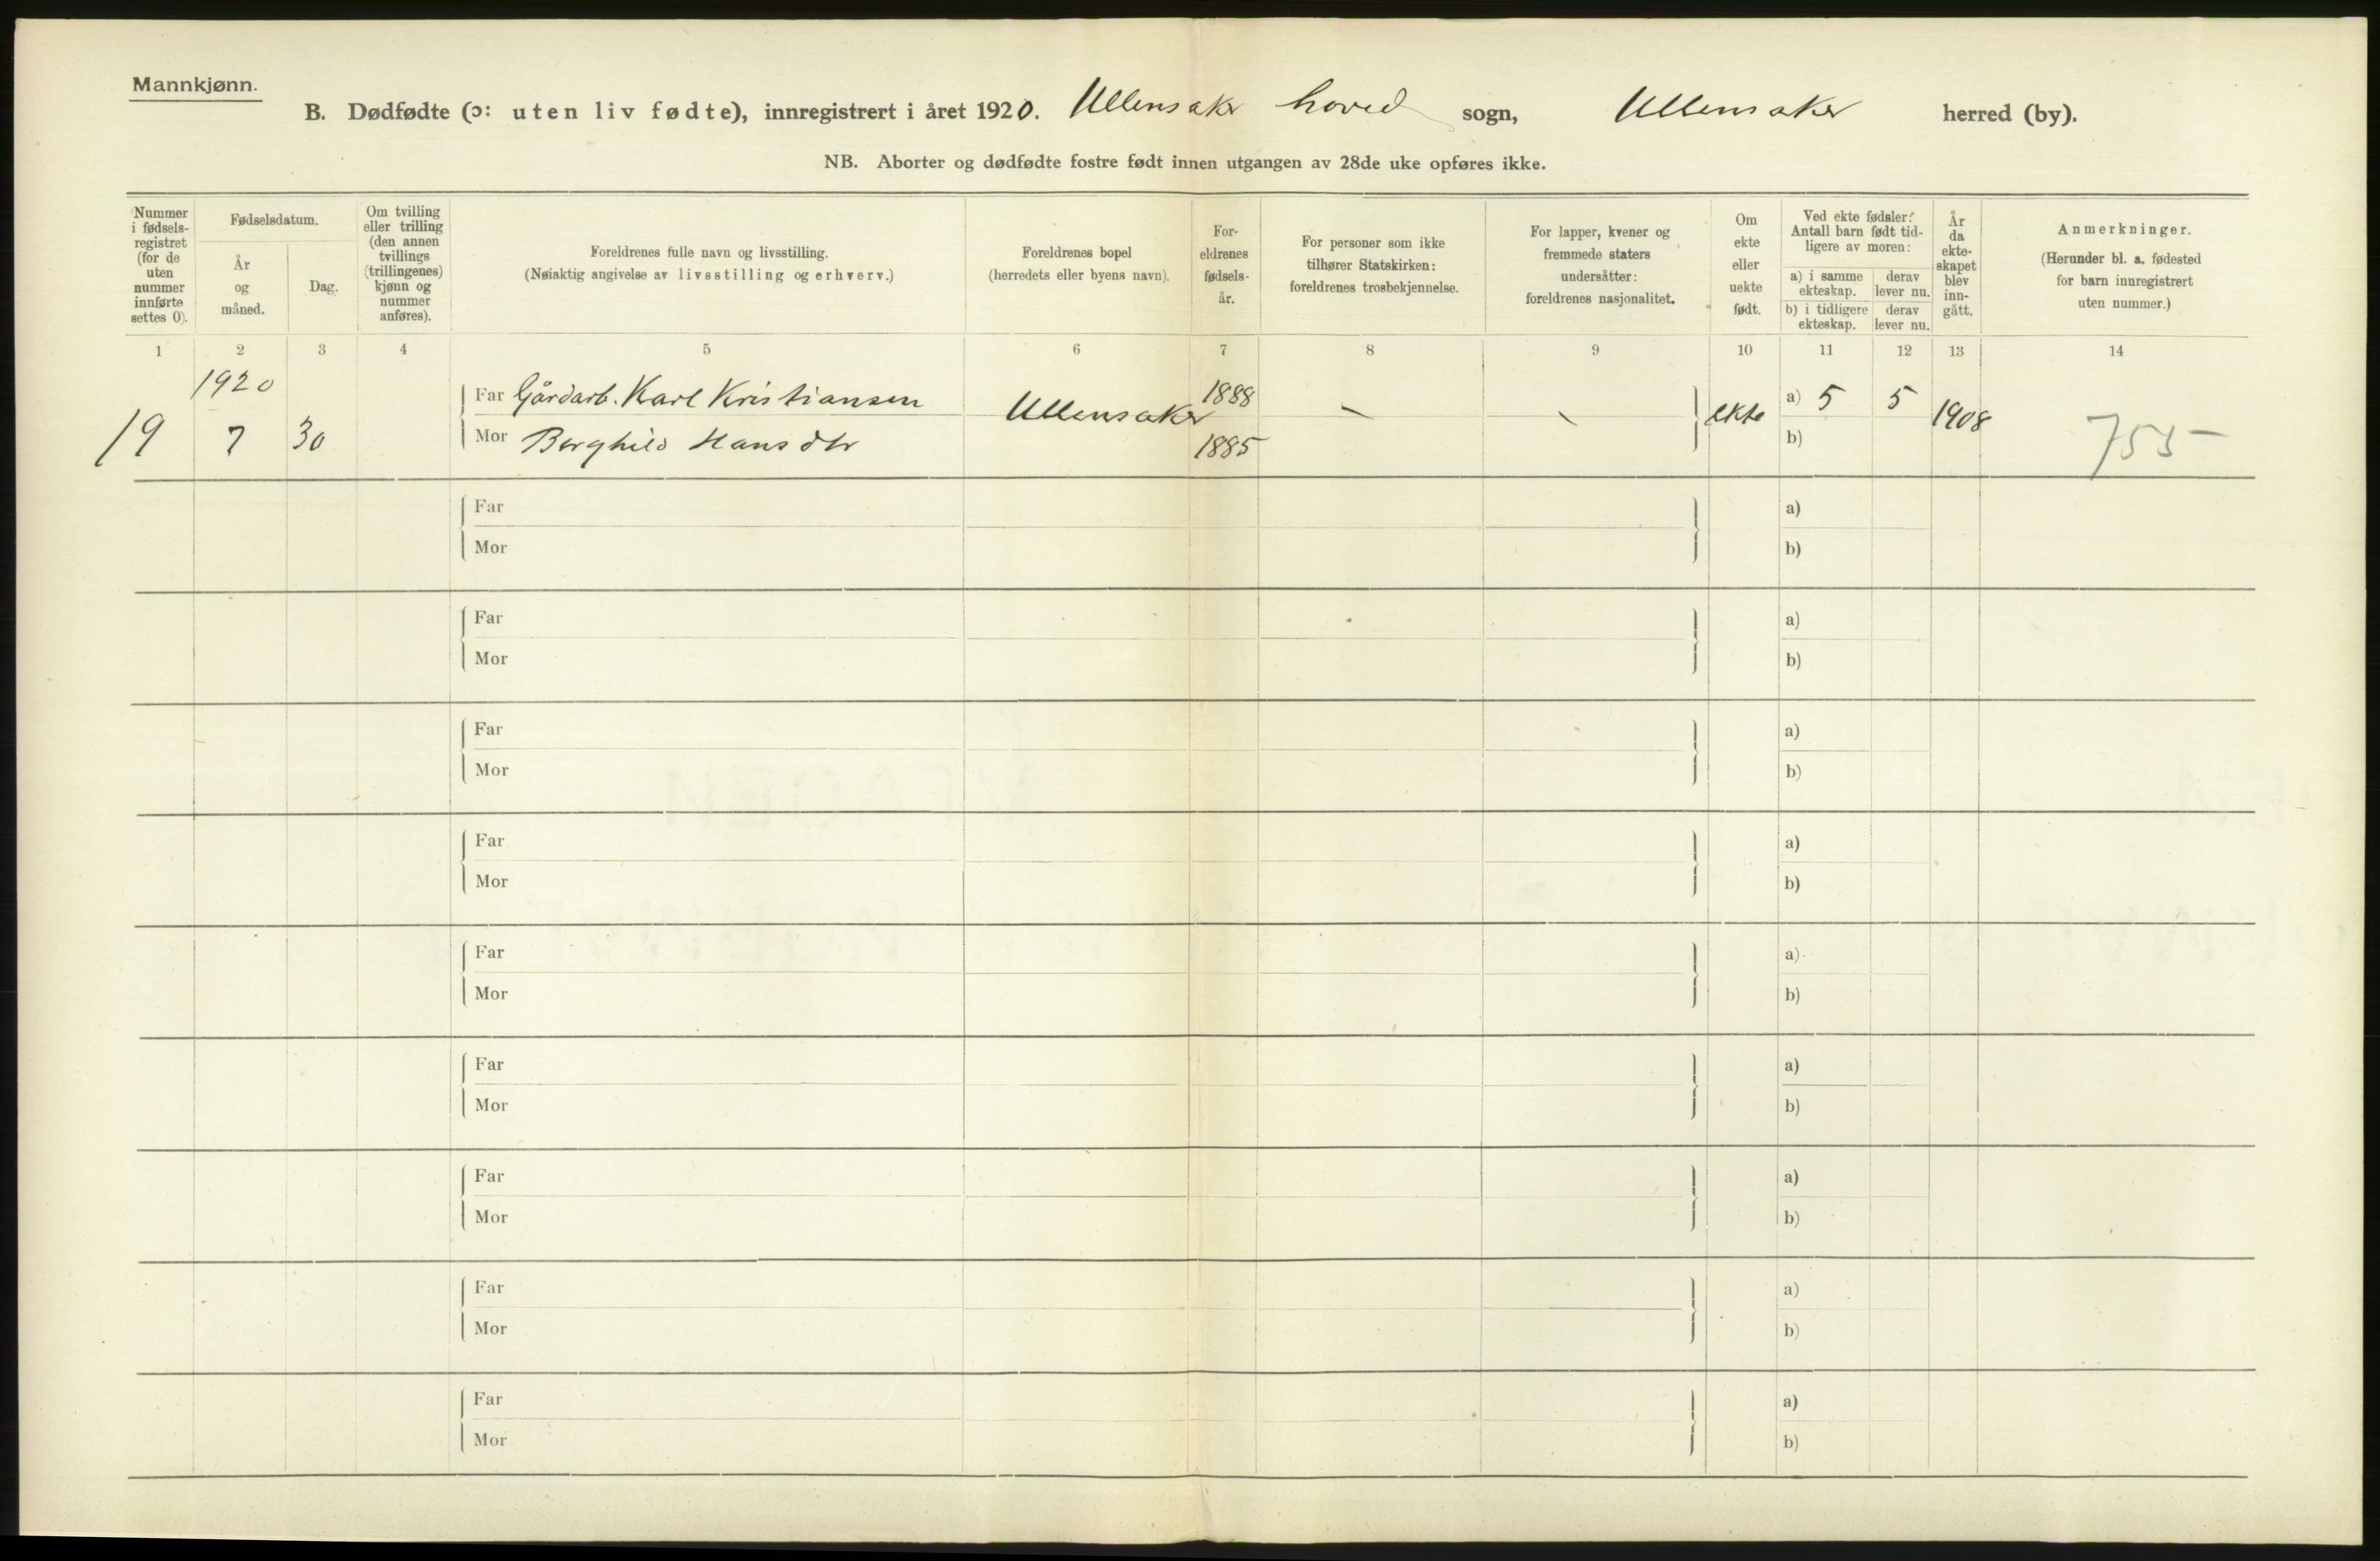 Mannkjønn.
B. Dødfødte (ɔ: uten liv fødte), innregistrert i året 1920. Ullensaker hoved sogn, Ullensaker herred (by).
NB. Aborter og dødfødte fostre født innen utgangen av 28de uke opføres ikke.
Nummer i fødsels-registret (for de uten nummer innførte settes 0).
Fødselsdatum.
År og måned.
Dag.
Om tvilling eller trilling (den annen tvillings (trillingenes) kjønn og nummer anføres).
Foreldrenes fulle navn og livsstilling.
(Nøiaktig angivelse av livsstilling og erhverv.)
Foreldrenes bopel
(herredets eller byens navn).
For-eldrenes fødsels-år.
For personer som ikke tilhører Statskirken: foreldrenes trosbekjennelse.
For lapper, kvener og fremmede staters undersåtter: foreldrenes nasjonalitet.
Om ekte eller uekte født.
Ved ekte fødsler: Antall barn født tid-ligere av moren:
a) i samme ekteskap.
derav lever nu.
b) i tidligere ekteskap.
derav lever nu.
År da ekte-skapet blev inn-gått.
Anmerkninger.
(Herunder bl. a. fødested for barn innregistrert uten nummer.)
1 2 3 4 5 6 7 8 9 10 11 12 13 14
1920
19 7 30
Far Gårdarb. Karl Kristiansen
Mor Borghild Hansdtr
Ullensaker
1888
1885
ekte
a) 5 5
b)
1908
755
Far a)
Mor b)
Far a)
Mor b)
Far a)
Mor b)
Far a)
Mor b)
Far a)
Mor b)
Far a)
Mor b)
Far a)
Mor b)
Far a)
Mor b)
Far a)
Mor b)